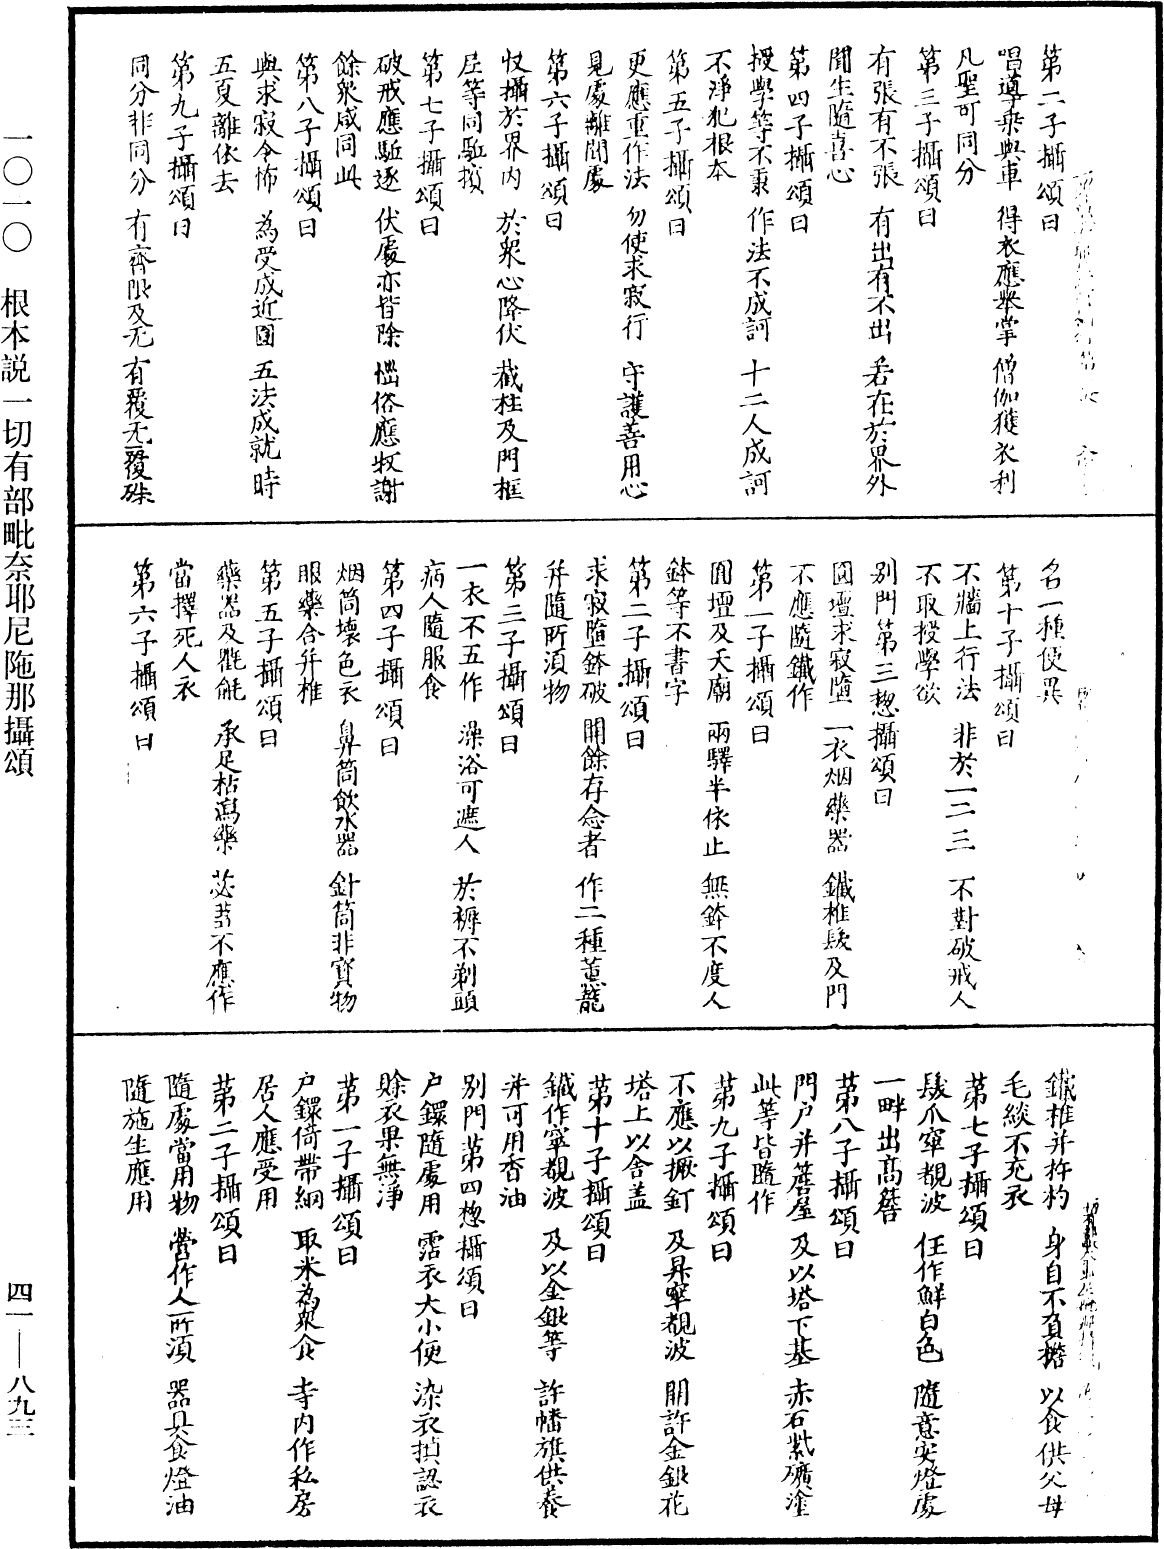 第二子攝頌曰
唱導乘與車　得衣應舉掌　僧伽獲衣利
凡聖可同分
第三子攝頌曰
有張有不張　有出有不出　若在於界外
聞生隨喜心
第四子攝頌曰
授學等不秉　作法不成訶　十二人成訶
不淨犯根本
第五子攝頌曰
更應重作法　勿使求寂行　守護善用心
見處離聞處
第六子攝頌曰
收攝於界內　於眾心降伏　截柱及門框
屋等同驅擯
第七子攝頌曰
破戒應驅逐　伏處亦皆除　惱俗應收謝
餘眾咸同此
第八子攝頌曰
與求寂令怖　為受成近圓　五法成就時
五夏離依去
第九子攝頌曰
同分非同分　有齊限及无　有覆无覆殊
名一種便異
第十子攝頌曰
不牆上行法　非於一二三　不對破戒人
不取授學欲
別門第三惣攝頌曰
圓壇求寂墮　一衣烟藥器　鐵椎髮及門
不應隨鐵作
第一子攝頌曰
圓壇及天廟　兩驛半依止　無鉢不度人
鉢等不書字
第二子攝頌曰
求寂墮鉢破　開餘存念者　作二種薰籠
并隨所須物
第三子攝頌曰
一衣不五作　澡浴可遮人　於褥不剃頭
病人隨服食
第四子攝頌曰
烟筒壞色衣　鼻筒飲水器　針筒非寶物
服藥合并椎
第五子攝頌曰
藥器及氍毹　承足枯瀉藥　苾蒭不應作
當擇死人衣
第六子攝頌曰
鐵椎并杵杓　身自不負擔　以食供父母
毛緂不充衣
第七子攝頌曰
髮爪窣覩波　任作鮮白色　隨意安燈處
一畔出高簷
第八子攝頌曰
門戶并簷屋　及以塔下基　赤石紫礦塗
此等皆隨作
第九子攝頌曰
不應以橛釘　及昇窣覩波　開許金銀花
塔上以舍蓋
第十子攝頌曰
鐵作窣覩波　及以金銀等　許幡旗供養
并可用香油
別門第四惣攝頌曰
戶鐶隨處用　霑衣大小便　染衣損認衣
賒衣果無淨
第一子攝頌曰
戶鐶倚帶網　取米為眾食　寺內作私房
居人應受用
第二子攝頌曰
隨處當用物　營作人所須　器具食燈油
隨施生應用
一〇一〇　根本説一切有部毗奈耶尼陁那攝頌
四一——八九三